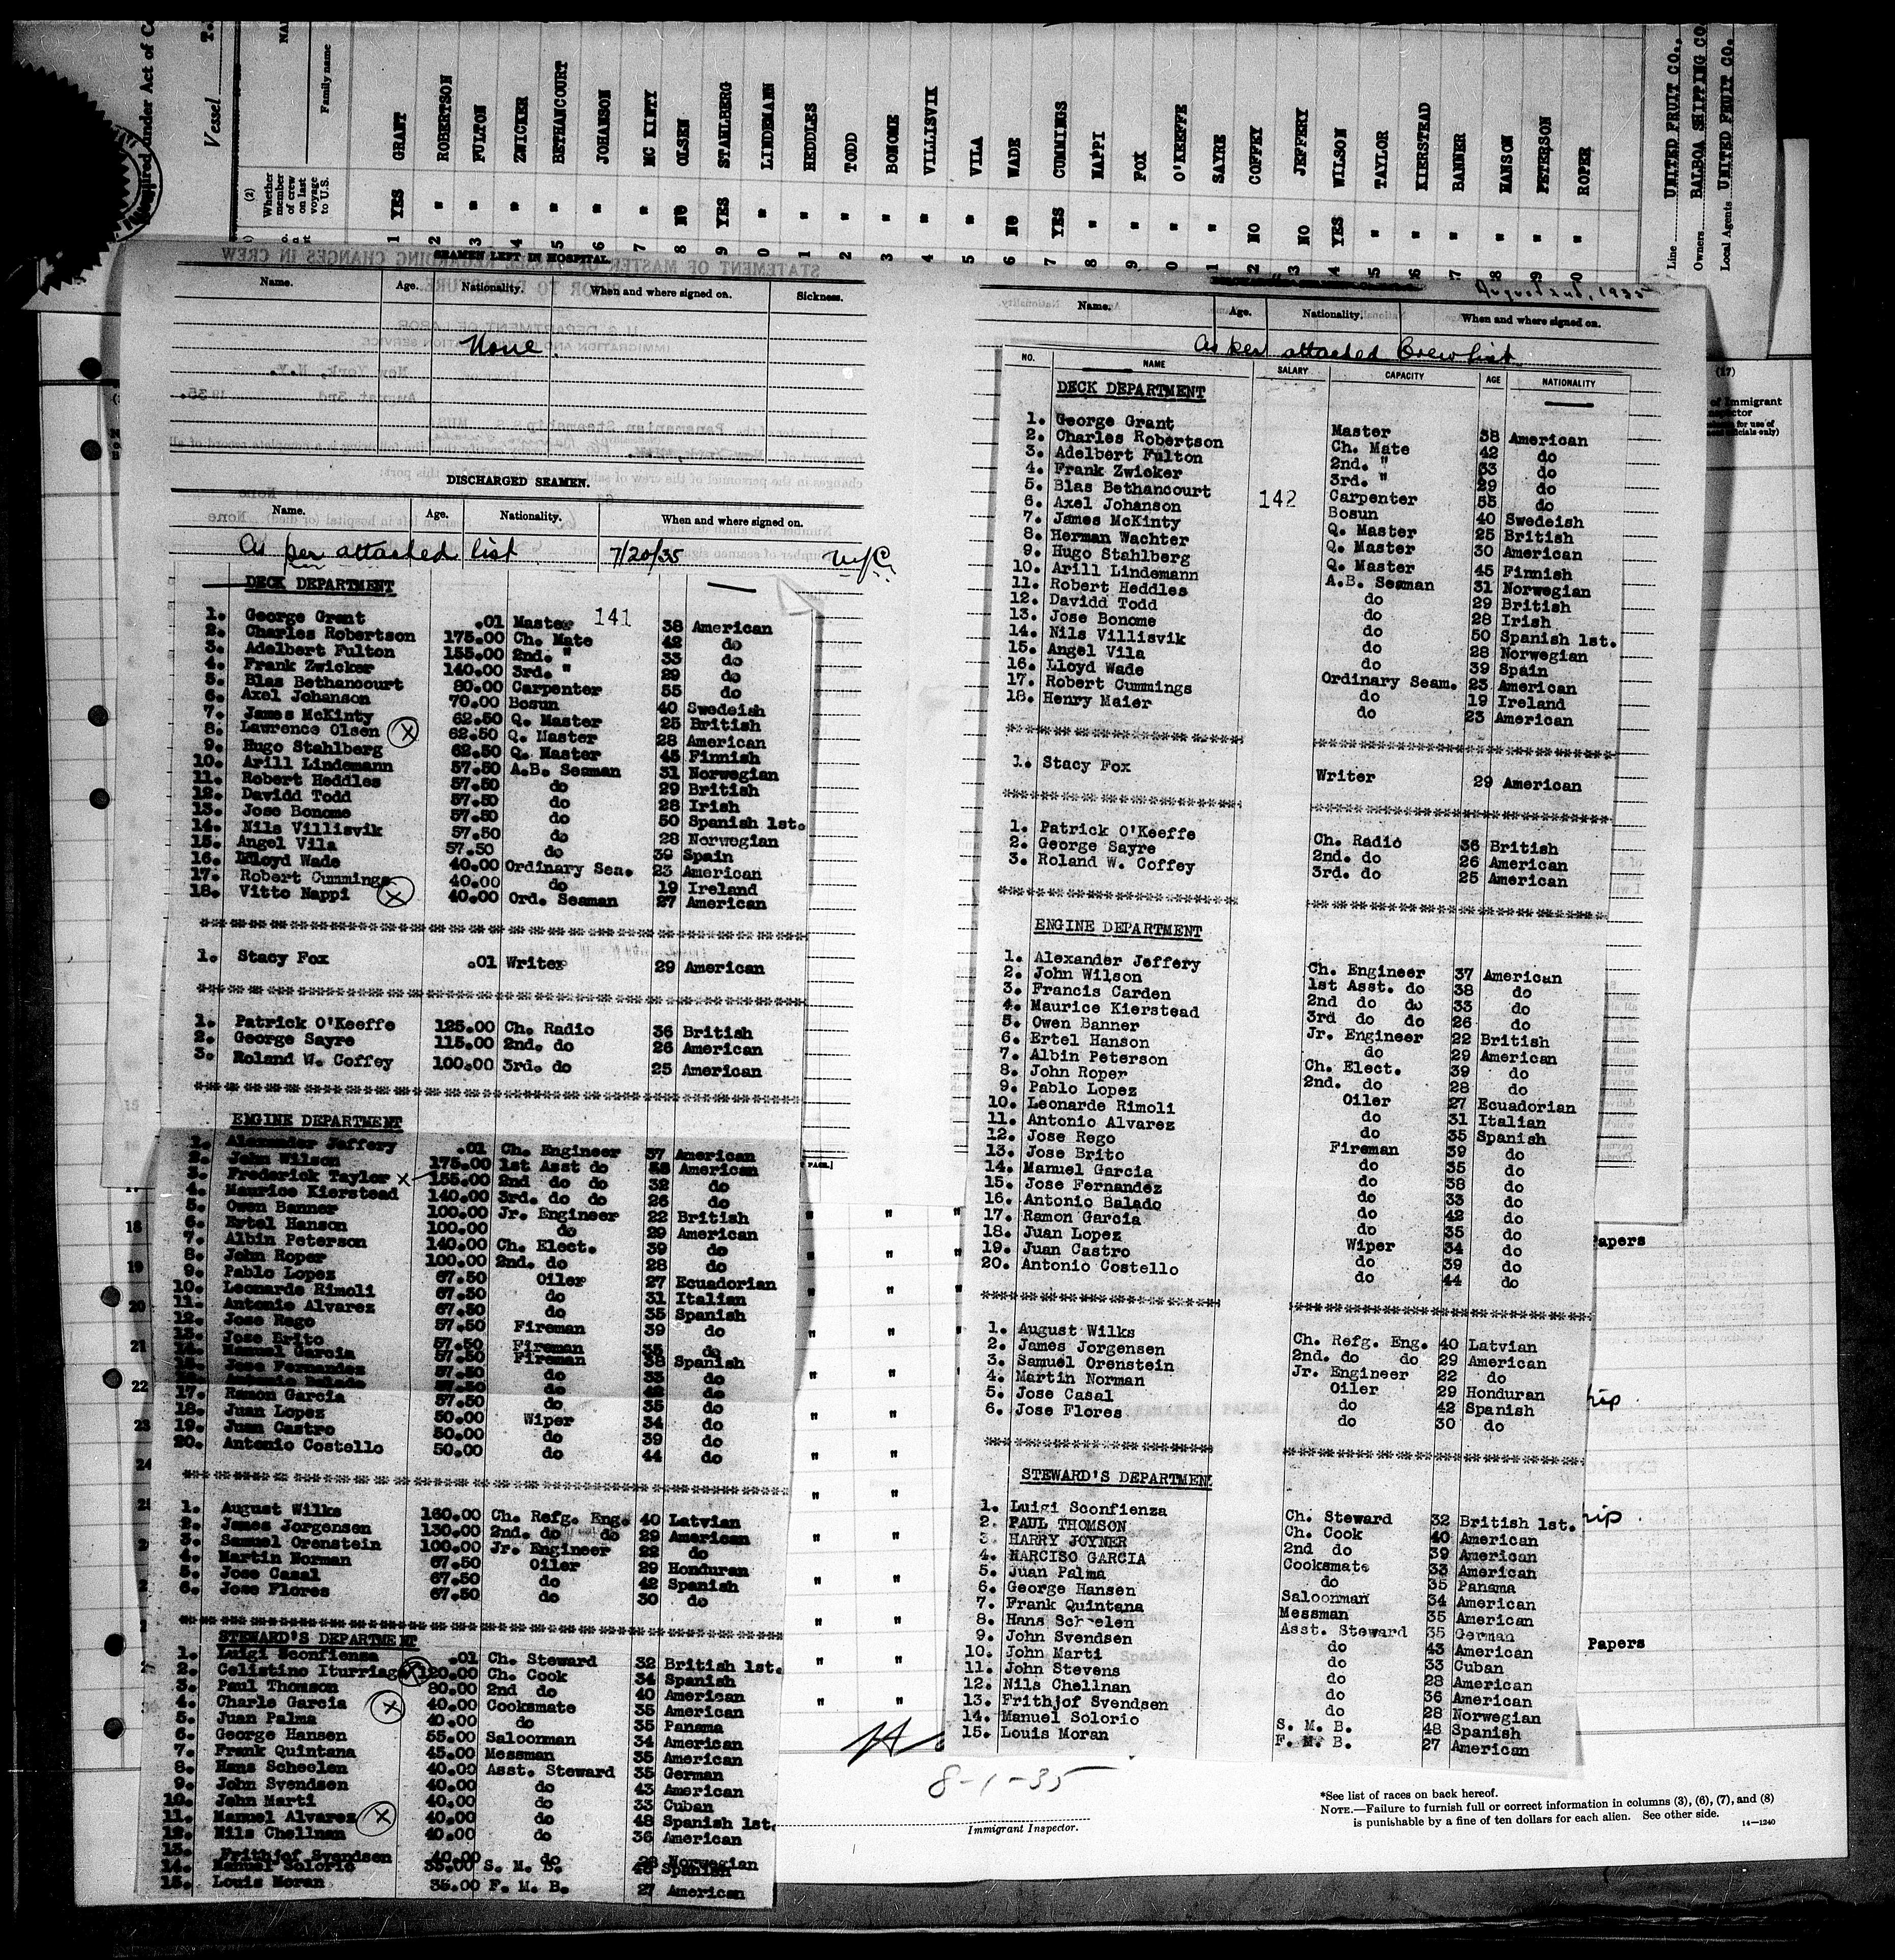 Required under Act of C
Vessel
To.
(2)
Whether member of crew on last voyage to U.S.
NA
Family name
1 YES GRANT
2 " ROBERTSON
3 " FULTON
4 " ZWICKER
5 " BETHANCOURT
6 " JOHANSON
7 " MC KINTY
8 NO OLSEN
9 YES STAHLBERG
0 " LINDEMANN
1 " HEDDLES
2 " TODD
3 " BONOME
4 " VILLISVIK
5 " VILA
6 NO WADE
7 YES CUMMINGS
8 " MAPPI
9 " FOX
0 " O'KEEFFE
1 " SAYRE
2 NO COFFEY
3 NO JEFFERY
4 YES WILSON
5 " TAYLOR
6 " KIERSTEAD
7 " BANNER
8 " HANSON
9 " PETERSON
0 " ROPER
Line UNITED FRUIT CO.,
Owners BALBOA SHIPPING CO
Local Agents UNITED FRUIT CO.
SEAMEN LEFT IN HOSPITAL.
Name. Age. Nationality. When and where signed on. Sickness.
None.
DISCHARGED SEAMEN.
Name. Age. Nationality. When and where signed on.
As per attached list 7/20/35 N.Y.C.
DECK DEPARTMENT
141
1. George Grant .01 Master 38 American
2. Charles Robertson 175.00 Ch. Mate 42 do
3. Adelbert Fulton 155.00 2nd. " 33 do
4. Frank Zwicker 140.00 3rd. " 29 do
5. Blas Bethancourt 80.00 Carpenter 55 do
6. Axel Johanson 70.00 Bosun 40 Swedeish
7. James McKinty 62.50 Q. Master 25 British
8. Lawrence Olsen X 62.50 Q. Master 28 American
9. Hugo Stahlberg 62.50 Q. Master 45 Finnish
10. Arill Lindemann 57.50 A.B. Seaman 31 Norwegian
11. Robert Heddles 57.50 do 29 British
12. Davidd Todd 57.50 do 28 Irish
13. Jose Bonome 57.50 do 50 Spanish 1st.
14. Nils Villisvik 57.50 do 28 Norwegian
15. Angel Vila 57.50 do 39 Spain
16. Lloyd Wade 40.00 Ordinary Sea. 23 American
17. Robert Cummings 40.00 do 19 Ireland
18. Vitto Nappi X 40.00 Ord. Seaman 27 American
1. Stacy Fox .01 Writer 29 American
1. Patrick O'Keeffe 125.00 Ch. Radio 36 British
2. George Sayre 115.00 2nd. do 26 American
3. Roland W. Coffey 100.00 3rd. do 25 American
ENGINE DEPARTMENT
1. Alexander Jeffery .01 Ch. Engineer 37 American
2. John Wilson 175.00 1st Asst do 38 American
3. Frederick Taylor X 155.00 2nd do do 32 do
4. Maurice Kierstead 140.00 3rd. do do 26 do
5. Owen Banner 100.00 Jr. Engineer 22 British
6. Ertel Hanson 100.00 do 29 American
7. Albin Peterson 140.00 Ch. Elect. 39 do
8. John Roper 100.00 2nd. do 28 do
9. Pablo Lopez 67.50 Oiler 27 Ecuadorian
10. Leonarde Rimoli 67.50 do 31 Italian
11. Antonio Alvarez 67.50 do 35 Spanish
12. Jose Rego 57.50 Fireman 39 do
13. Jose Brito 57.50 Fireman 35 do
14. Manuel Garcia 57.50 Fireman 38 Spanish
15. Jose Fernandez 57.50 do 33 do
16. Antonio Balado 57.50 do 42 do
17. Ramon Garcia 57.50 do 35 do
18. Juan Lopez 50.00 Wiper 34 do
19. Juan Castro 50.00 do 39 do
20. Antonio Costello 50.00 do 44 do
1. August Wilks 160.00 Ch. Refg. Eng. 40 Latvian
2. James Jorgensen 130.00 2nd. do do 29 American
3. Samuel Orenstein 100.00 Jr. Engineer 22 do
4. Martin Norman 67.50 Oiler 29 Honduran
5. Jose Casal 67.50 do 42 Spanish
6. Jose Flores 67.50 do 30 do
STEWARD'S DEPARTMENT
1. Luigi Sconfienza .01 Ch. Steward 32 British 1st.
2. Celistino Iturriaga X 120.00 Ch. Cook 34 Spanish
3. Paul Thomson 80.00 2nd do 40 American
4. Charle Garcia X 40.00 Cooksmate 35 American
5. Juan Palma 40.00 do 35 Panama
6. George Hansen 55.00 Saloonman 34 American
7. Frank Quintana 45.00 Messman 35 American
8. Hans Scheelen 40.00 Asst. Steward 35 German
9. John Svendsen 40.00 do 43 American
10. John Marti 40.00 do 33 Cuban
11. Manuel Alvarez X 40.00 do 48 Spanish 1st.
12. Nils Chellnan 40.00 do 36 American
13. Frithjof Svendsen 40.00 do 28 Norwegian
14. Manuel Solorio 35.00 S. M. B. 48 Spanish
15. Louis Moran 35.00 F. M. B. 27 American
August 2nd, 1935
Name. Age. Nationality. When and where signed on.
As per attached Crew list
NO. NAME SALARY CAPACITY AGE NATIONALITY
DECK DEPARTMENT
142
1. George Grant Master 38 American
2. Charles Robertson Ch. Mate 42 do
3. Adelbert Fulton 2nd. " 33 do
4. Frank Zwicker 3rd. " 29 do
5. Blas Bethancourt Carpenter 55 do
6. Axel Johanson Bosun 40 Swedeish
7. James McKinty Q. Master 25 British
8. Herman Wachter Q. Master 30 American
9. Hugo Stahlberg Q. Master 45 Finnish
10. Arill Lindemann A.B. Seaman 31 Norwegian
11. Robert Heddles do 29 British
12. Davidd Todd do 28 Irish
13. Jose Bonome do 50 Spanish 1st.
14. Nils Villisvik do 28 Norwegian
15. Angel Vila do 39 Spain
16. Lloyd Wade Ordinary Seam. 23 American
17. Robert Cummings do 19 Ireland
18. Henry Maier do 23 American
1. Stacy Fox Writer 29 American
1. Patrick O'Keeffe Ch. Radio 36 British
2. George Sayre 2nd. do 26 American
3. Roland W. Coffey 3rd. do 25 American
ENGINE DEPARTMENT
1. Alexander Jeffery Ch. Engineer 37 American
2. John Wilson 1st Asst. do 38 do
3. Francis Carden 2nd do do 33 do
4. Maurice Kierstead 3rd do do 26 do
5. Owen Banner Jr. Engineer 22 British
6. Ertel Hanson do 29 American
7. Albin Peterson Ch. Elect. 39 do
8. John Roper 2nd. do 28 do
9. Pablo Lopez Oiler 27 Ecuadorian
10. Leonarde Rimoli do 31 Italian
11. Antonio Alvarez do 35 Spanish
12. Jose Rego Fireman 39 do
13. Jose Brito do 35 do
14. Manuel Garcia do 38 do
15. Jose Fernandez do 33 do
16. Antonio Balado do 42 do
17. Ramon Garcia do 35 do
18. Juan Lopez Wiper 34 do
19. Juan Castro do 39 do
20. Antonio Costello do 44 do
1. August Wilks Ch. Refg. Eng. 40 Latvian
2. James Jorgensen 2nd. do do 29 American
3. Samuel Orenstein Jr. Engineer 22 do
4. Martin Norman Oiler 29 Honduran
5. Jose Casal do 42 Spanish
6. Jose Flores do 30 do
STEWARD'S DEPARTMENT
1. Luigi Sconfienza Ch. Steward 32 British 1st.
2. PAUL THOMSON Ch. Cook 40 American
3. HARRY JOYNER 2nd do 39 American
4. NARCISO GARCIA Cooksmate 33 American
5. Juan Palma do 35 Panama
6. George Hansen Saloonman 34 American
7. Frank Quintana Messman 35 American
8. Hans Scheelen Asst. Steward 35 German
9. John Svendsen do 43 American
10. John Marti do 33 Cuban
11. John Stevens do 28 American
12. Nils Chellnan do 36 American
13. Frithjof Svendsen do 28 Norwegian
14. Manuel Solorio S. M. B. 48 Spanish
15. Louis Moran F. M. B. 27 American
(17)
of Immigrant
Papers
Papers
8-1-35
Immigrant Inspector.
*See list of races on back hereof.
NOTE.—Failure to furnish full or correct information in columns (3), (6), (7), and (8)
is punishable by a fine of ten dollars for each alien. See other side.
14—1240